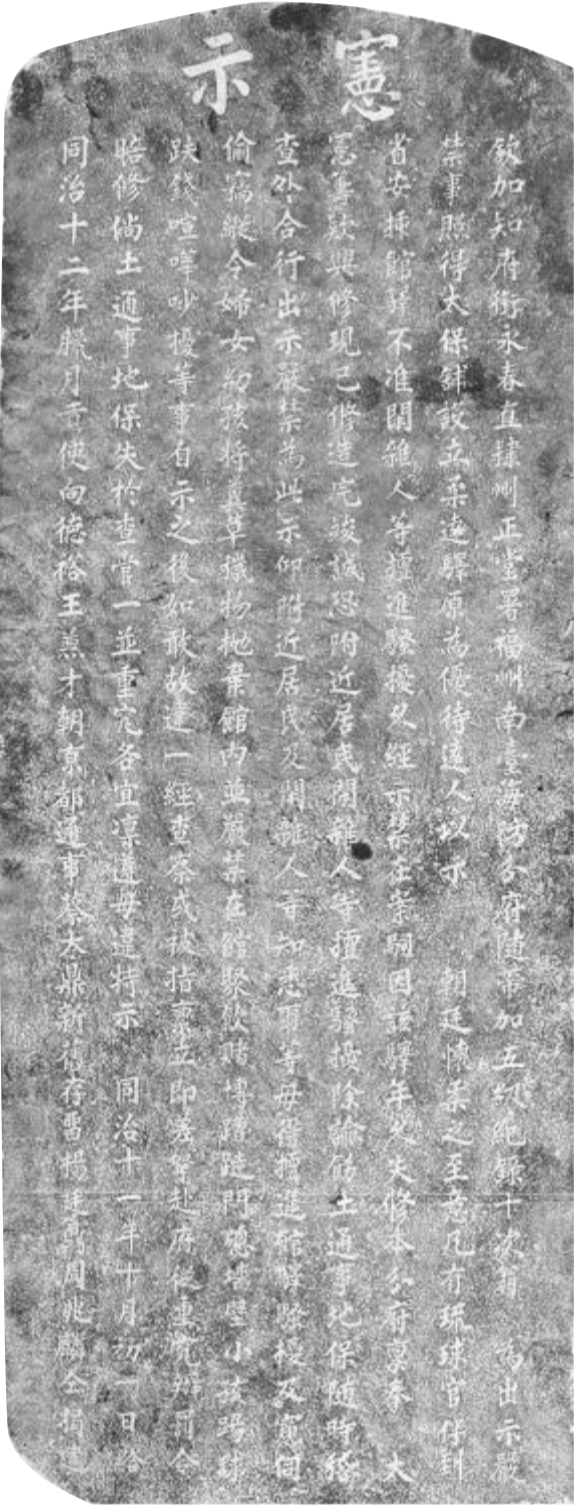 憲示
欽加知府銜永春直隸州正堂署福州南臺海防分府隨帶加五級紀錄十次翁　為出示嚴
禁事照得太保舖設立柔遠驛原為優待遠人以示　朝廷懷柔之至意凡有琉球官伴到
省安插館驛不准閒雜人等擅進騷擾久經示禁在案嗣因該驛年久失修本分府稟奉　大
憲籌款興修現已修造完竣誠恐附近居民閒雜人等擅進騷擾除諭飭土通事地保隨時稽
查外合行出示嚴禁為此示仰附近居民及閒雜人等知悉爾等毋得擅進館驛騷擾及寬同
偷竊縱令婦女幼孩將糞草穢物拋棄館內並嚴禁在館聚飲賭博蹧蹋門窗墻壁小孩踢球
跌錢喧嘩吵擾等事自示之後如敢故違一經查察或被指稟立即嚴拿赴府從重究辦罰令
賠修倘土通事地保失於查管一並重究各宜凜遵毋違特示　同治十一年十月初一日給
同治十二年臘月　使向德裕王兼才朝京都通事蔡大鼎新舊存留楊廷　周兆麟仝捐建